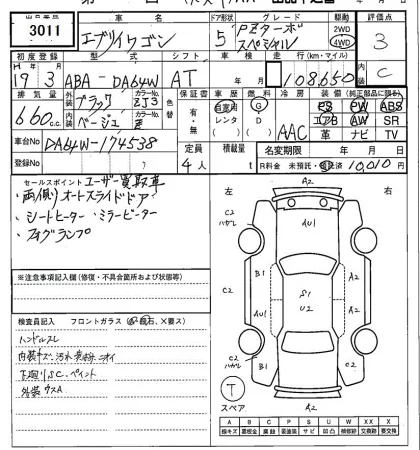 出品番号 3011
車名 エブリイワゴン
ドア形状 5
グレード PZターボスペシャル
駆動 2WD 4WD
評価点 3
初度登録 H 19年 3月
型式 ABA-DA64W
シフト AT
車検 年 月
走行(km・マイル) 108,660
内装 C
排気量 660 c.c.
外装 ブラック カラーNo. ZJ3
内装 ベージュ カラーNo.
色替
保証書 有・無
車歴 自家用 レンタ
燃料 G D
冷房 AAC
装備(純正部品に限る)
PS PW ABS
エアB AW SR
革 ナビ TV
車台No DA64W-174538
登録No
定員 4人
積載量 t
名変期限 年 月 日
R料金 未預託・預託済 10,010円
セールスポイント ユーザー買取車
・両側オートスライドドア
・シートヒーター・ミラーヒーター
・フォグランプ
※注意事項記入欄(修復・不具合箇所および欠品等)
検査員記入 フロントガラス(・飛石、×要ス)
ハンドルスレ
下廻りSC、ペイント
外装 キズA
左 右
A2
C2 ハガレ
AU1
C2
B1 B1 A2
C2
S1
U2
AU1 A2
C2 ハガレ
B1
C2 ハガレ
A2
T
スペア
A B C P S U W X XX
線キズ 要板金 腐蝕 要塗装 サビ 凹凸 補修跡 要交換 交換跡